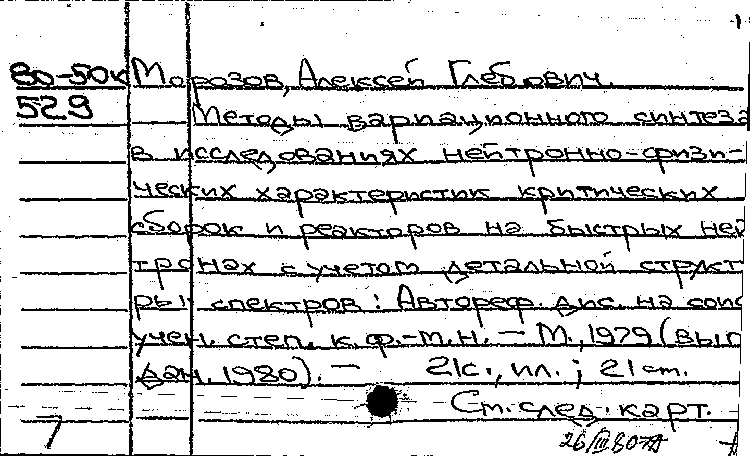 80-50к Морозов, Алексей Глебович.
529 Методы вариационного синтеза
в исследованиях нейтронно-физи-
ческих характеристик критических
сборок и реакторов на быстрых ней
тронах с учетом детальной структ
ры спектров: Автореф. дис. на соис
учен. степ. к. ф.-м.н. — М., 1979 (вып
дан. 1980). — 21с., ил.; 21 см.
См. след. карт.
7